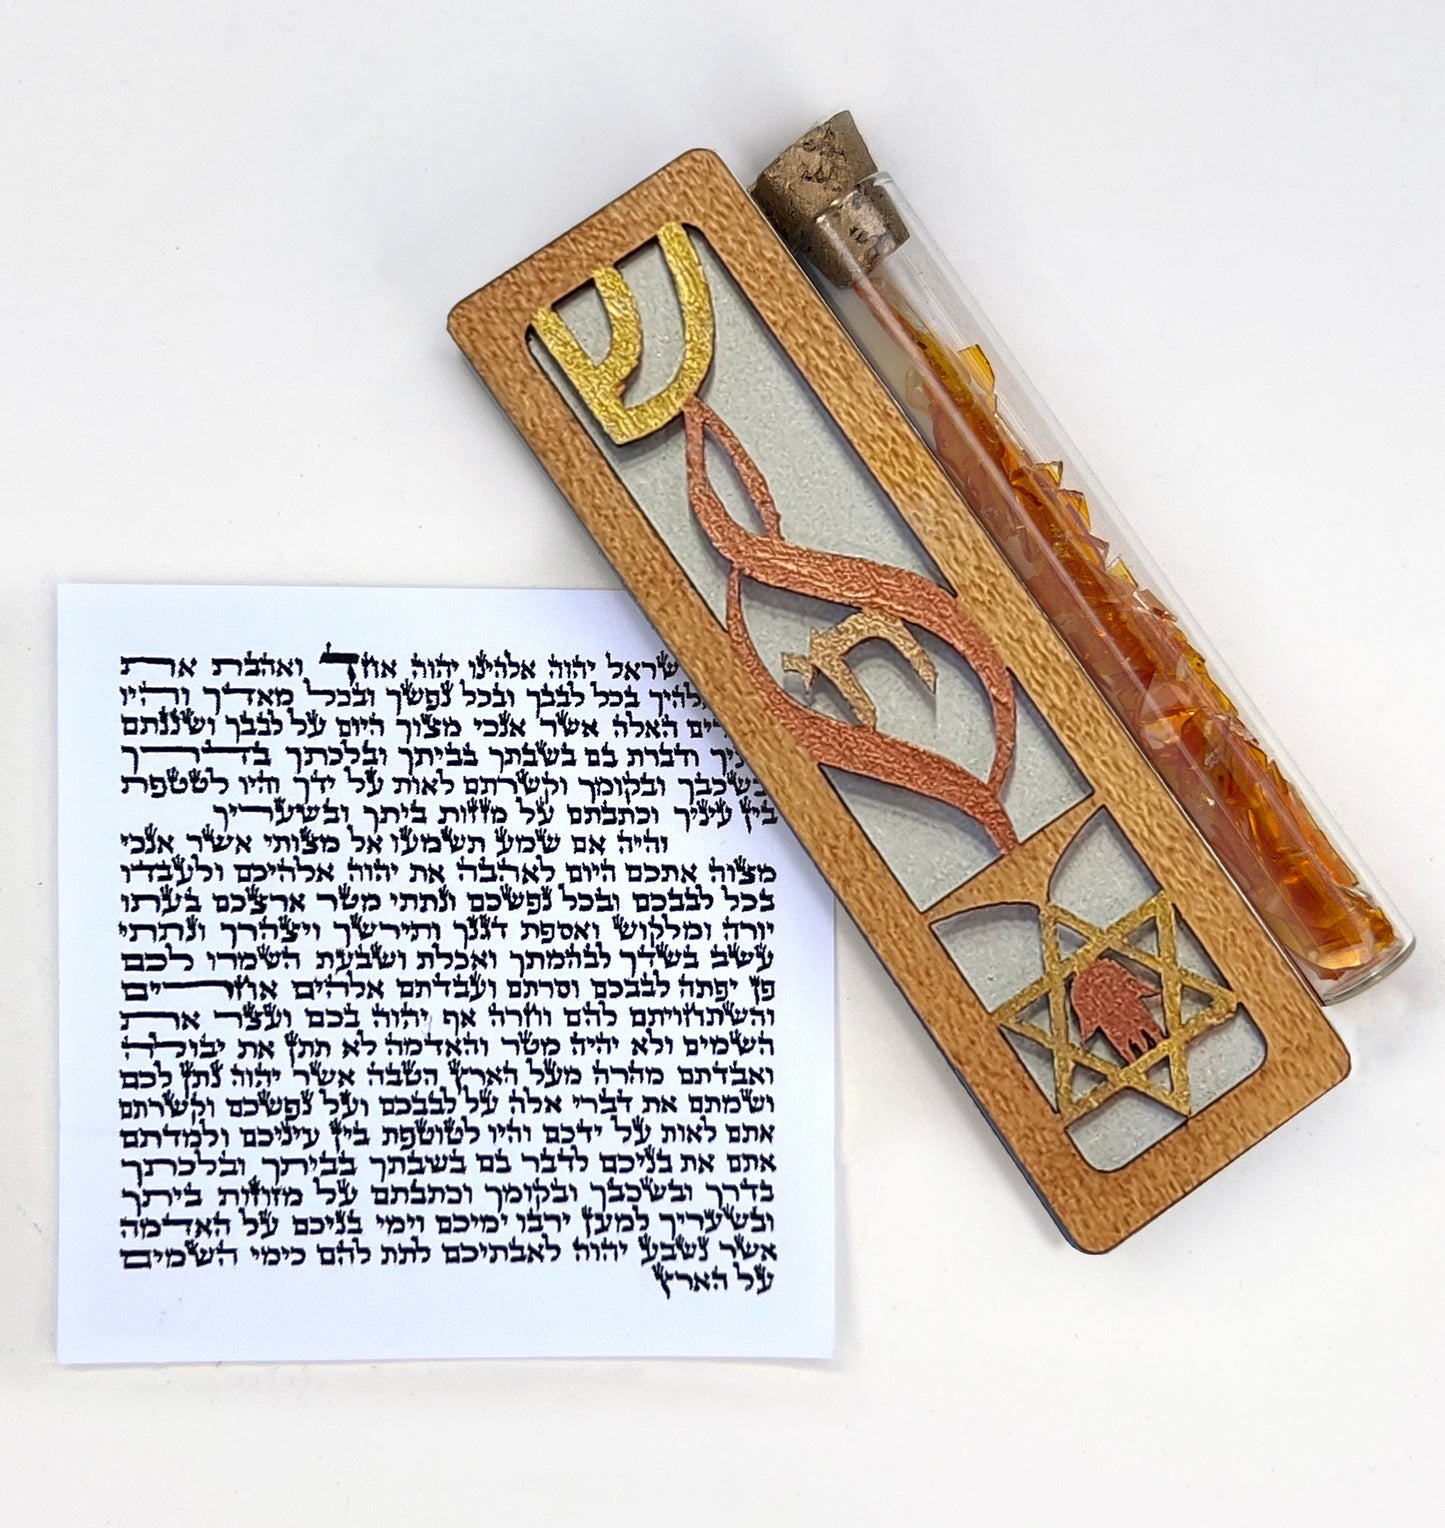 ש
חי
שראל יהוה אלהינו יהוה אחד ואהבת את
להיך בכל לבבך ובכל נפשך ובכל מאדך והיו
רים האלה אשר אנכי מצוך היום על לבבך ושננתם
ניך ודברת בם בשבתך בביתך ובלכתך בדרך
בשכבך ובקומך וקשרתם לאות על ידך והיו לטטפת
בין עיניך וכתבתם על מזזות ביתך ובשעריך
והיה אם שמע תשמעו אל מצותי אשר אנכי
מצוה אתכם היום לאהבה את יהוה אלהיכם ולעבדו
בכל לבבכם ובכל נפשכם ונתתי מטר ארצכם בעתו
יורה ומלקוש ואספת דגנך ותירשך ויצהרך ונתתי
עשב בשדך לבהמתך ואכלת ושבעת השמרו לכם
פן יפתה לבבכם וסרתם ועבדתם אלהים אחרים
והשתחויתם להם וחרה אף יהוה בכם ועצר את
השמים ולא יהיה מטר והאדמה לא תתן את יבולה
ואבדתם מהרה מעל הארץ הטבה אשר יהוה נתן לכם
ושמתם את דברי אלה על לבבכם ועל נפשכם וקשרתם
אתם לאות על ידכם והיו לטוטפת בין עיניכם ולמדתם
אתם את בניכם לדבר בם בשבתך בביתך ובלכתך
בדרך ובשכבך ובקומך וכתבתם על מזוזות ביתך
ובשעריך למען ירבו ימיכם וימי בניכם על האדמה
אשר נשבע יהוה לאבתיכם לתת להם כימי השמים
על הארץ